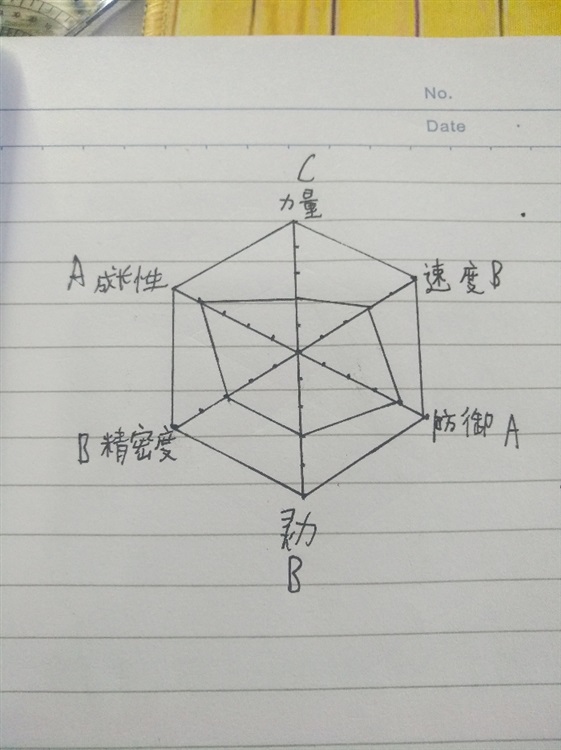 No.
Date
C
力量
A 成长性
速度 B
B 精密度
防御 A
灵力
B